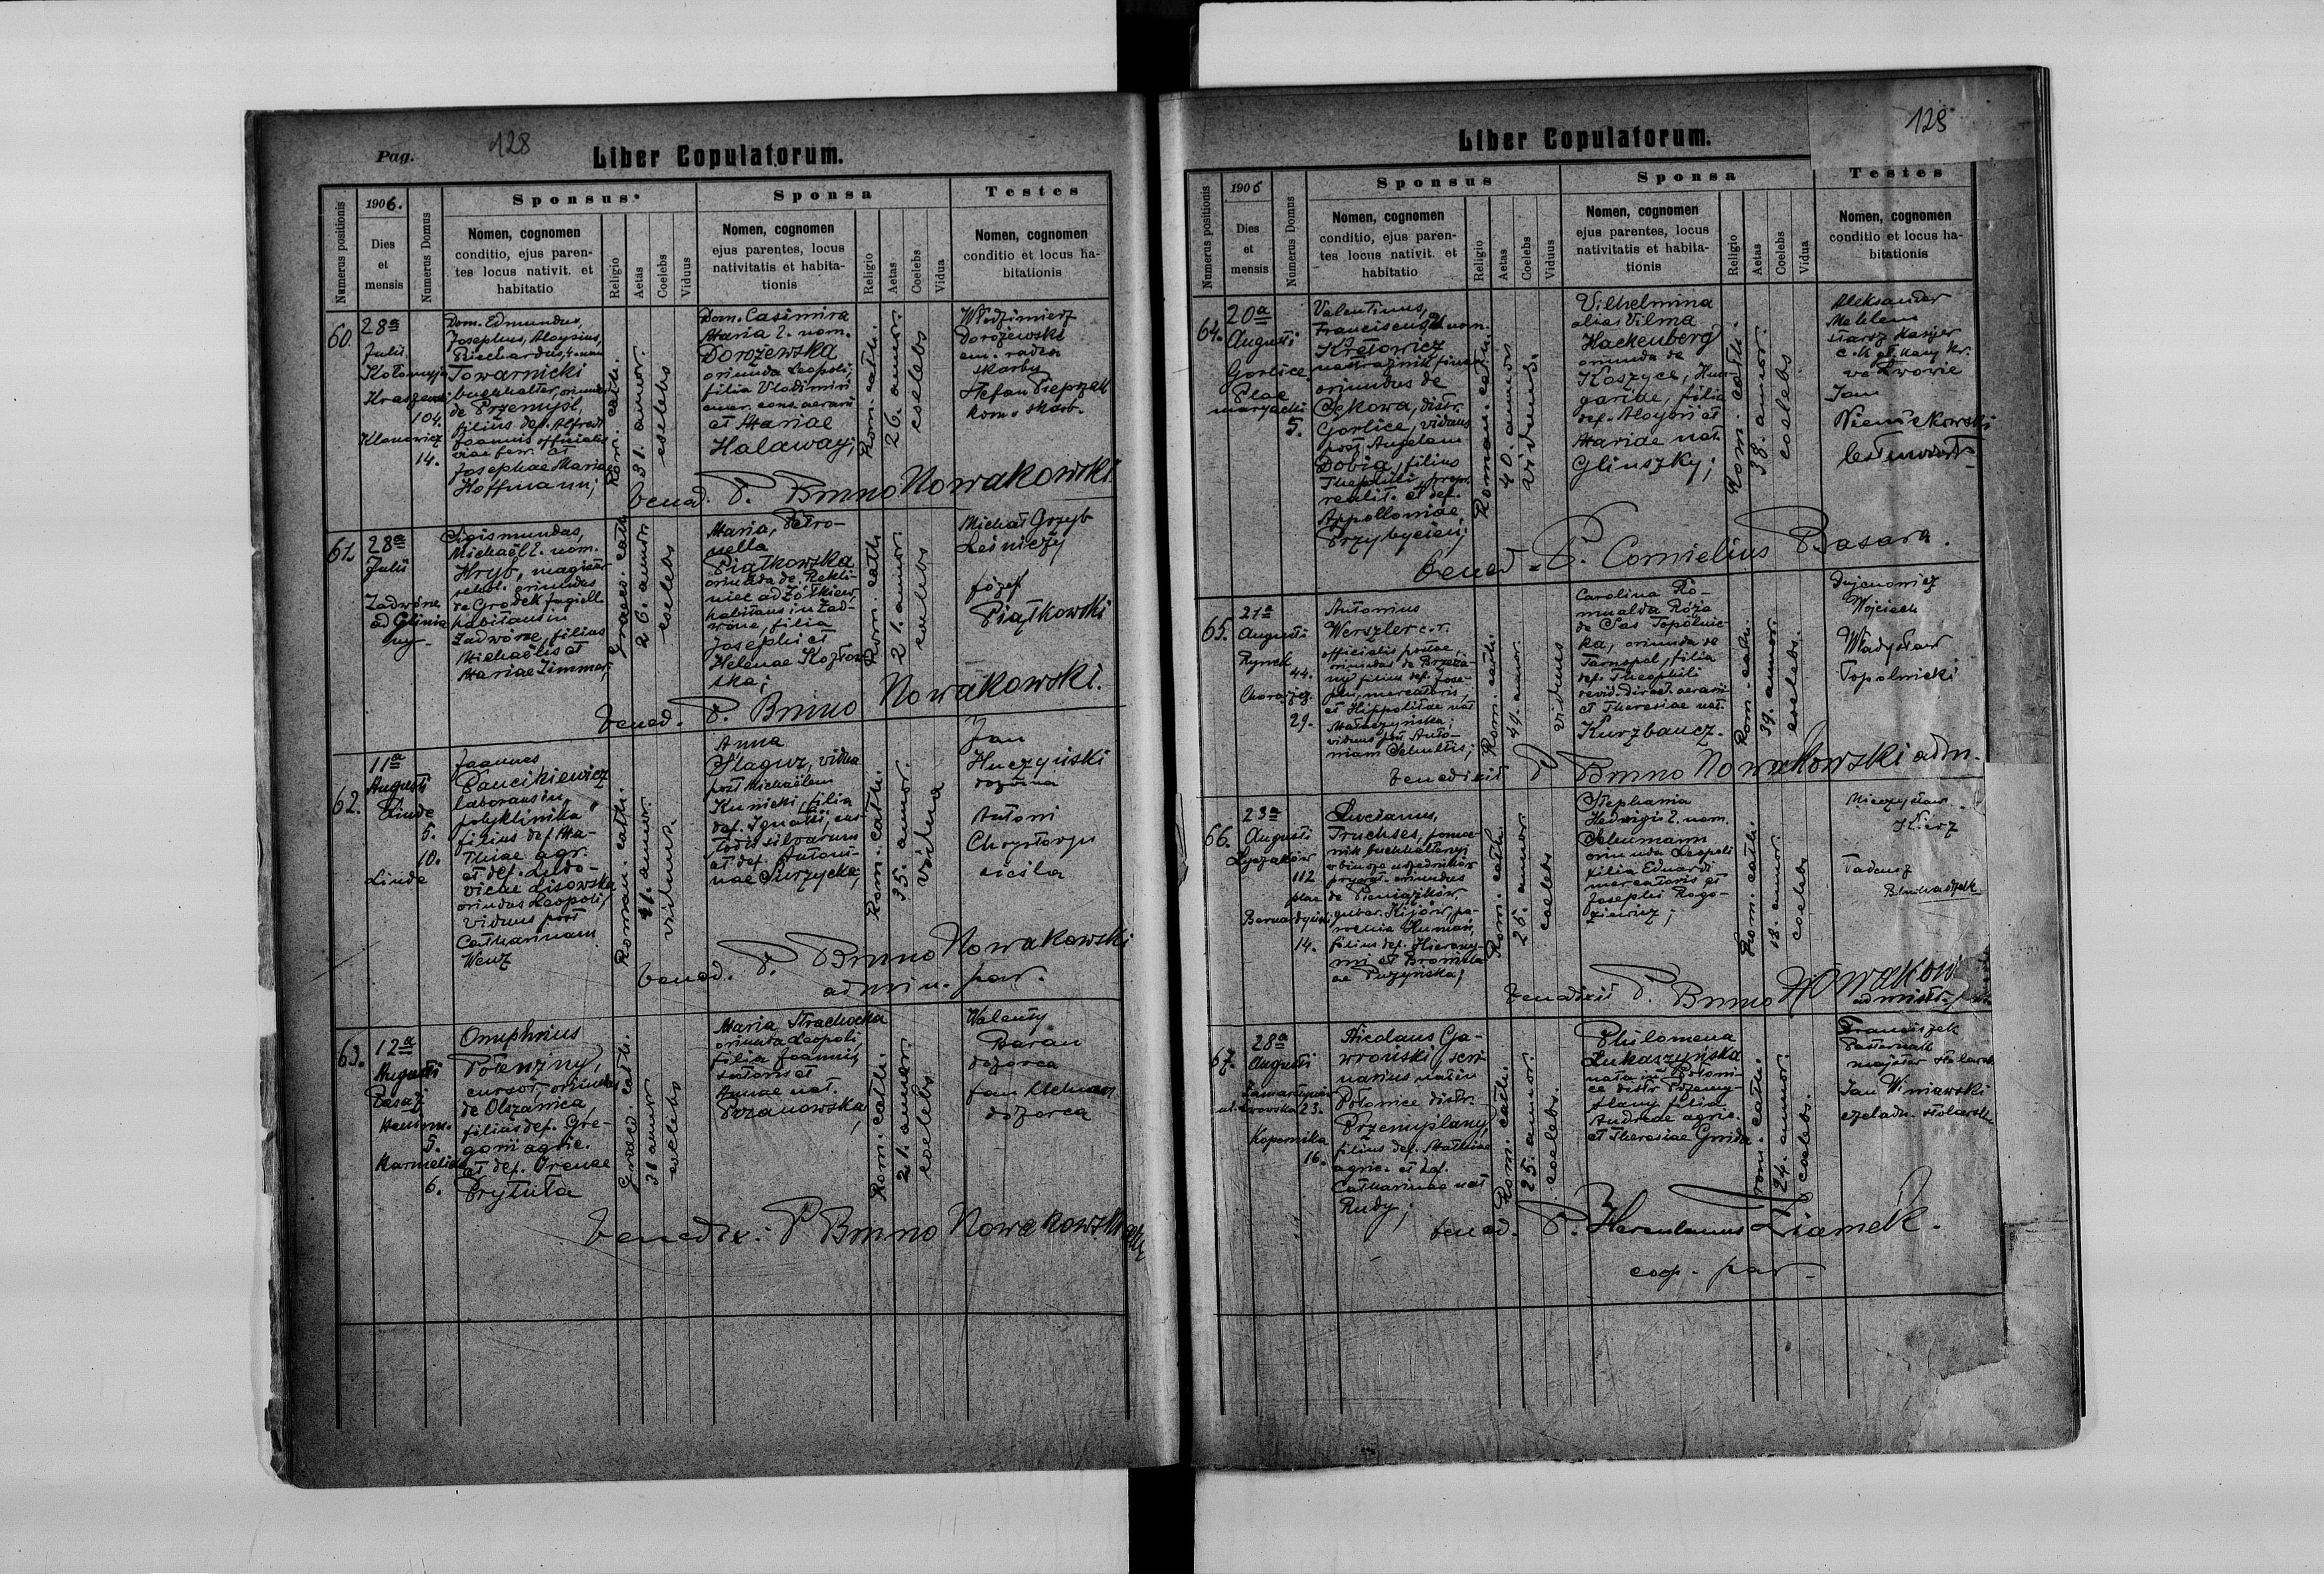 Pag. 128
Liber Copulatorum.
Numerus positionis
1906.
Dies
et
mensis
Numerus Domus
Sponsus
Nomen, cognomen
conditio, ejus paren-
tes locus nativit. et
habitatio
Religio
Aetas
Coelebs
Viduus
Sponsa
Nomen, cognomen
ejus parentes, locus
nativitatis et habita-
tionis
Religio
Aetas
Coelebs
Vidua
Testes
Nomen, cognomen
conditio et locus ha-
bitationis
60.
28a
Julii
Kołomyja
104.
Klonowicz
14.
Dom. Edmundus,
Josephus, Aloysius,
Richardus, 4 nom.
Towarnicki
buchhalter, oriundus
de Przemyśl,
filius def. Alfredi
Joannis officialis
viae ferr. et
Josephae Mariae
Hoffmann;
Rom. cath.
31. annor.
coelebs
Dom. Casimira
Maria 2. nom.
Dorożewska
oriunda Leopoli,
filia Vlodimiri
emer. cons. aerarii
et Mariae
Halaway;
Rom. cath.
26. annor.
coelebs
Włodzimierz
Dorożewski
em. radca
skarbu
Stefan Pieprzak
kom. skarb.
bened. P. Bruno Nowakowski.
61.
28a
Julii
Zadwórze
ad Glinia
ny
Sigismundus,
Michaël 2. nom.
Hryb, magister
schol. oriundus
de Gródek Jagiell.
habitans in
Zadwórze, filius
Michaëlis et
Mariae Zimmer;
Graeco. cath
26. annor
coelebs
Maria, Petro-
nella
Piątkowska
oriunda de Rekli-
niec ad Żółkiew,
habitans in Zad-
wórze, filia
Josephi et
Helenae Kozłow
ska;
Rom. cath
21. annor.
coelebs
Michał Grzyb
Leśniczy
Józef
Piątkowski
bened. P. Bruno Nowakowski.
62.
11a
Augusti
Linde
5.
10.
Linde
Joannes
Paucikiewicz
laborans in
polyklinika
filius def. Ma-
thiae agr.
et def. Ludo-
vicae Lisowska
oriundus Leopoli,
viduus post
Catharinam
Wenz
Roman. cath.
41. annor.
viduus.
Anna
Szlagur, vidua
post Michaëlem
Kunicki, filia
def. Ignatii, cus-
todis silvarum
et def. Antoni-
nae Surzycka;
Rom. cath.
35. annor.
vidua
Jan
Huczyński
Antoni
cieśla
bened. P. Bruno Nowakowski
admin. par.
63.
12a
Augusti
Pasaż
Hausm.
5.
Karmelicka
6.
Onuphrius
Potenziny,
cursor, oriundus
de Olszanica,
filius def. Gre-
gorii agric.
et def. Irenae
Prytuła
Graeco. cath.
31 annor
coelebs
Maria Strachocka
oriunda Leopoli,
filia Joannis
sectoris et
Annae nat.
Pozanowska,
Rom. cath.
21. annor.
coelebs
Walenty
Baran
dozorca
Jan
dozorca
benedix. P Bruno Nowakowski
128
Liber Copulatorum.
Numerus positionis
1906
Dies
et
mensis
Numerus Domus
Sponsus
Nomen, cognomen
conditio, ejus paren-
tes locus nativit. et
habitatio
Religio
Aetas
Coelebs
Viduus
Sponsa
Nomen, cognomen
ejus parentes, locus
nativitatis et habita-
tionis
Religio
Aetas
Coelebs
Vidua
Testes
Nomen, cognomen
conditio et locus ha-
bitationis
64.
20a
Augusti
Gorlice.
Plac
maryacki
5.
Valentinus,
Franciscus 2 nom.
Krętowicz
nadstrażnik finan.
oriundus de
Sękowa, distr.
Gorlice, viduus
post Angelam
Dobia, filius
Theophili, propr.
realit. et def.
Appolloniae
Przybycień;
Roman. cath.
40. annor
viduus.
Vilhelmina
alias Vilma
Hackenberg
oriunda de
Koszyce, Hun
gariae, filia
def. Aloysii et
Mariae nat.
Glinszky;
Rom. cath.
38. annor.
coelebs
Aleksander
starsz kasyer
we Lwowie
Jan
bened. P. Cornelius Basara.
65.
21a
Augusti
Rynek
44.
Chorążcz.
29.
Antonius
Werszler c.r.
officialis postae,
oriundus de Brzeża-
ny filius def. Jose-
phi, mercatoris,
et Hippolitae nat
viduus post Anto-
niam Schultis;
Rom. cath.
49. annor.
viduus
Carolina Ro-
mualda Róża
de Sas Topolnic-
ka, oriunda de
Tarnopol, filia
def. Theophili
revid. direct. aerarii
et Theresiae nat.
Kurzbaucz.
Rom. cath.
39. annor.
coelebs.
Wojciech
Władysław
Topolnicki
benedixit P Bruno Nowakowski adm.
66.
23a
Augusti
Łyczaków
112
plac
Bernardyński
14.
Lucianus,
Truchses, pomoc-
nik buchhalteryi
w biurze urzędników
prywat. oriundus
de Pieniążków,
guber. Kijów, pa-
rochia Humań,
filius def. Hierony-
mi et Bronisla
ae Puzyńska;
Rom. cath.
26. annor.
coelebs
Stephania
Hedwigis 2. nom.
Schumann
oriunda Leopoli
filia Eduardi
mercatoris et
Josephi Rogo-
ziewicz;
Rom. cath.
18. annor.
coelebs
Mieczysław
Kierz
Tadeusz
benedixit P. Bruno Nowakow
67.
28a
Augusti
Zamarstynów
ul. Lwowska 23.
Kopernika
16.
Nicolaus Ga-
wroński scri-
narius nat. in
Połonice distr.
Przemyślany
filius def. Mathiae
agric. et def.
Catharinae nat
Rudy;
Rom. cath.
25. annor.
coelebs.
Philomena
Łukaszyńska
nata in Połoni-
ce distr Przemy-
ślany filia
Andreae agric.
et Theresiae Gwida
rom. cath.
24. annor.
coelebs.
Franciszek
Pasternak
majster stolarsk.
Jan Winiawski
czeladn. stolarsk
bened. P. Herculanus Ziamek.
coop. par.